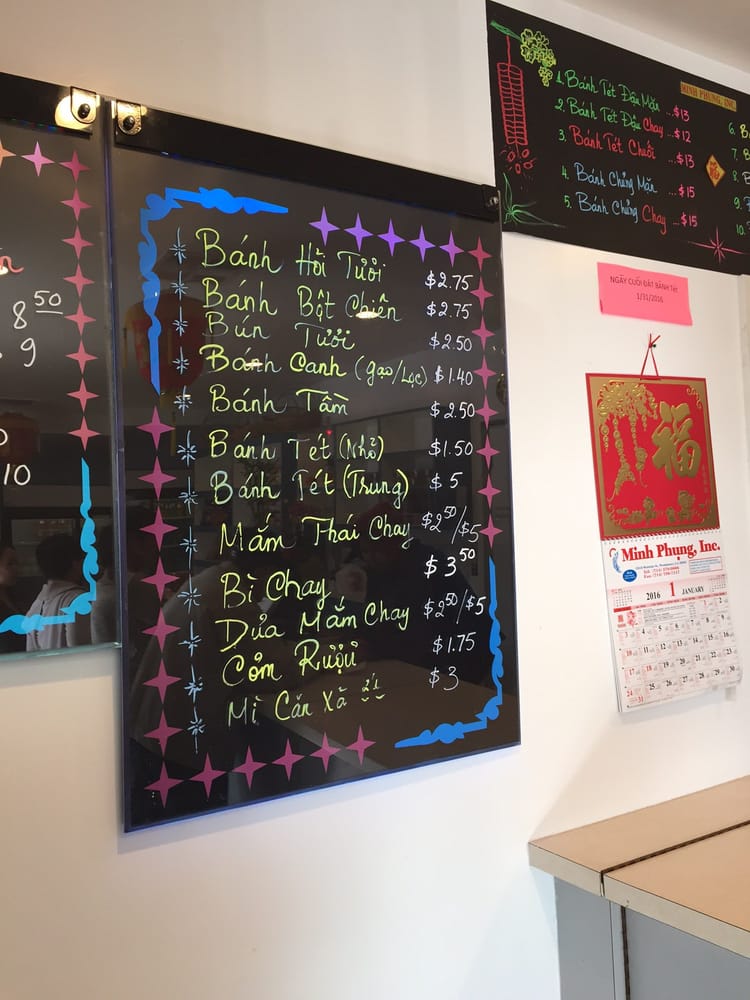 8 50
9
10
Bánh Hỏi Tươi $2.75
Bánh Bột Chiên $2.75
Bún Tươi $2.50
Bánh Canh (gạo/Lọc) $1.40
Bánh Tầm $2.50
Bánh Tét (Nhỏ) $1.50
Bánh Tét (Trung) $5
Mắm Thái Chay $2 50/$5
Bì Chay $3 50
Dưa Mắm Chay $2 50/$5
Cơm Rượu $1.75
Mì Căn Xả $3
MINH PHUNG, INC.
1. Bánh Tét Đậu Mặn ...$13
2. Bánh Tét Đậu Chay ...$12
3. Bánh Tét Chuối ...$13
4. Bánh Chưng Mặn ...$15
5. Bánh Chưng Chay ...$15
6.
7.
8.
9.
10.
NGÀY CUỐI ĐẶT BÁNH Tét
1/31/2016
福
Minh Phụng, Inc.
2016 1 JANUARY